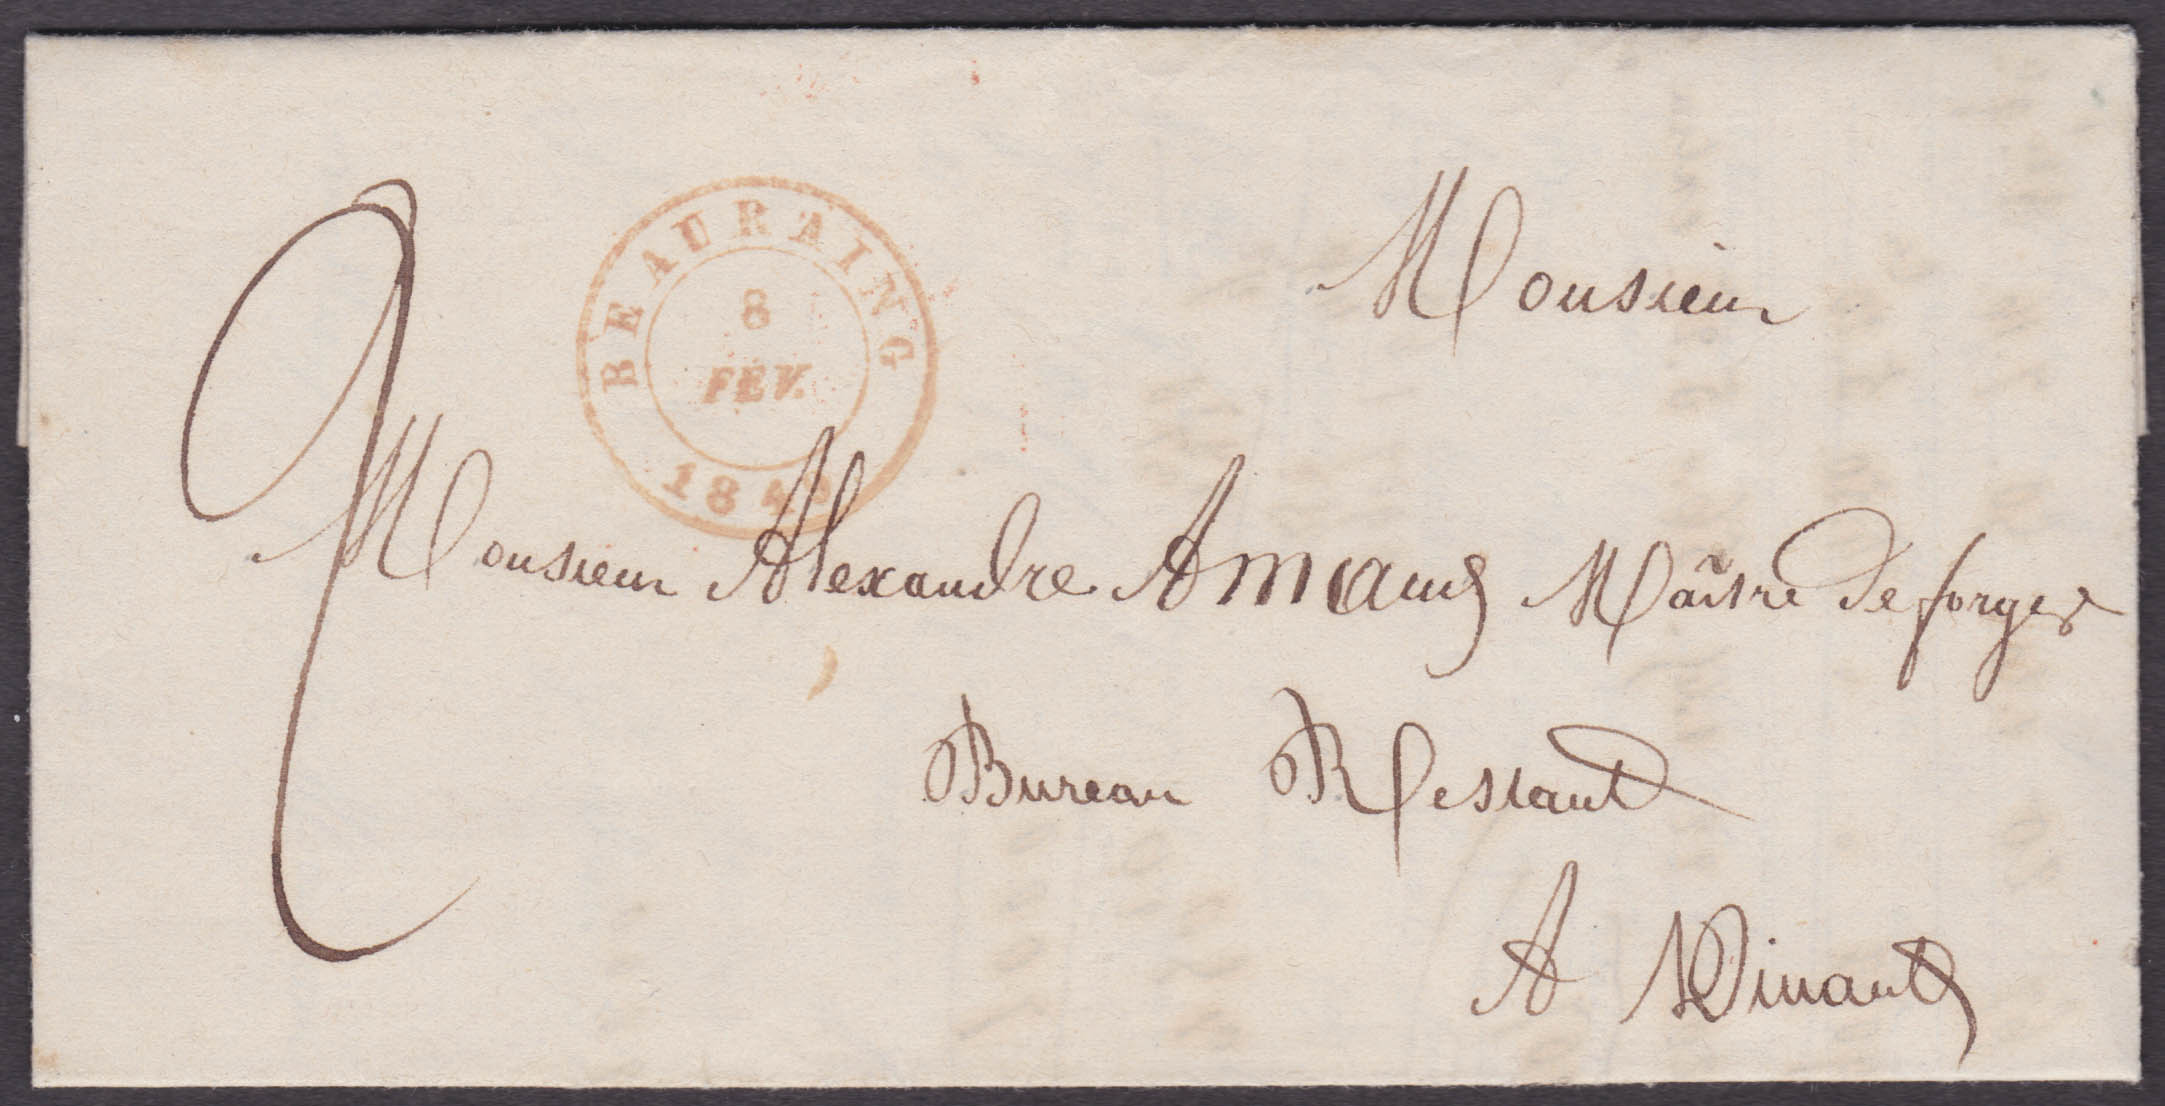 2
BEAURAING
8
FEV.
1849
Monsieur
Monsieur Alexandre Amand Maître de forges
Bureau Restant
A Dinant